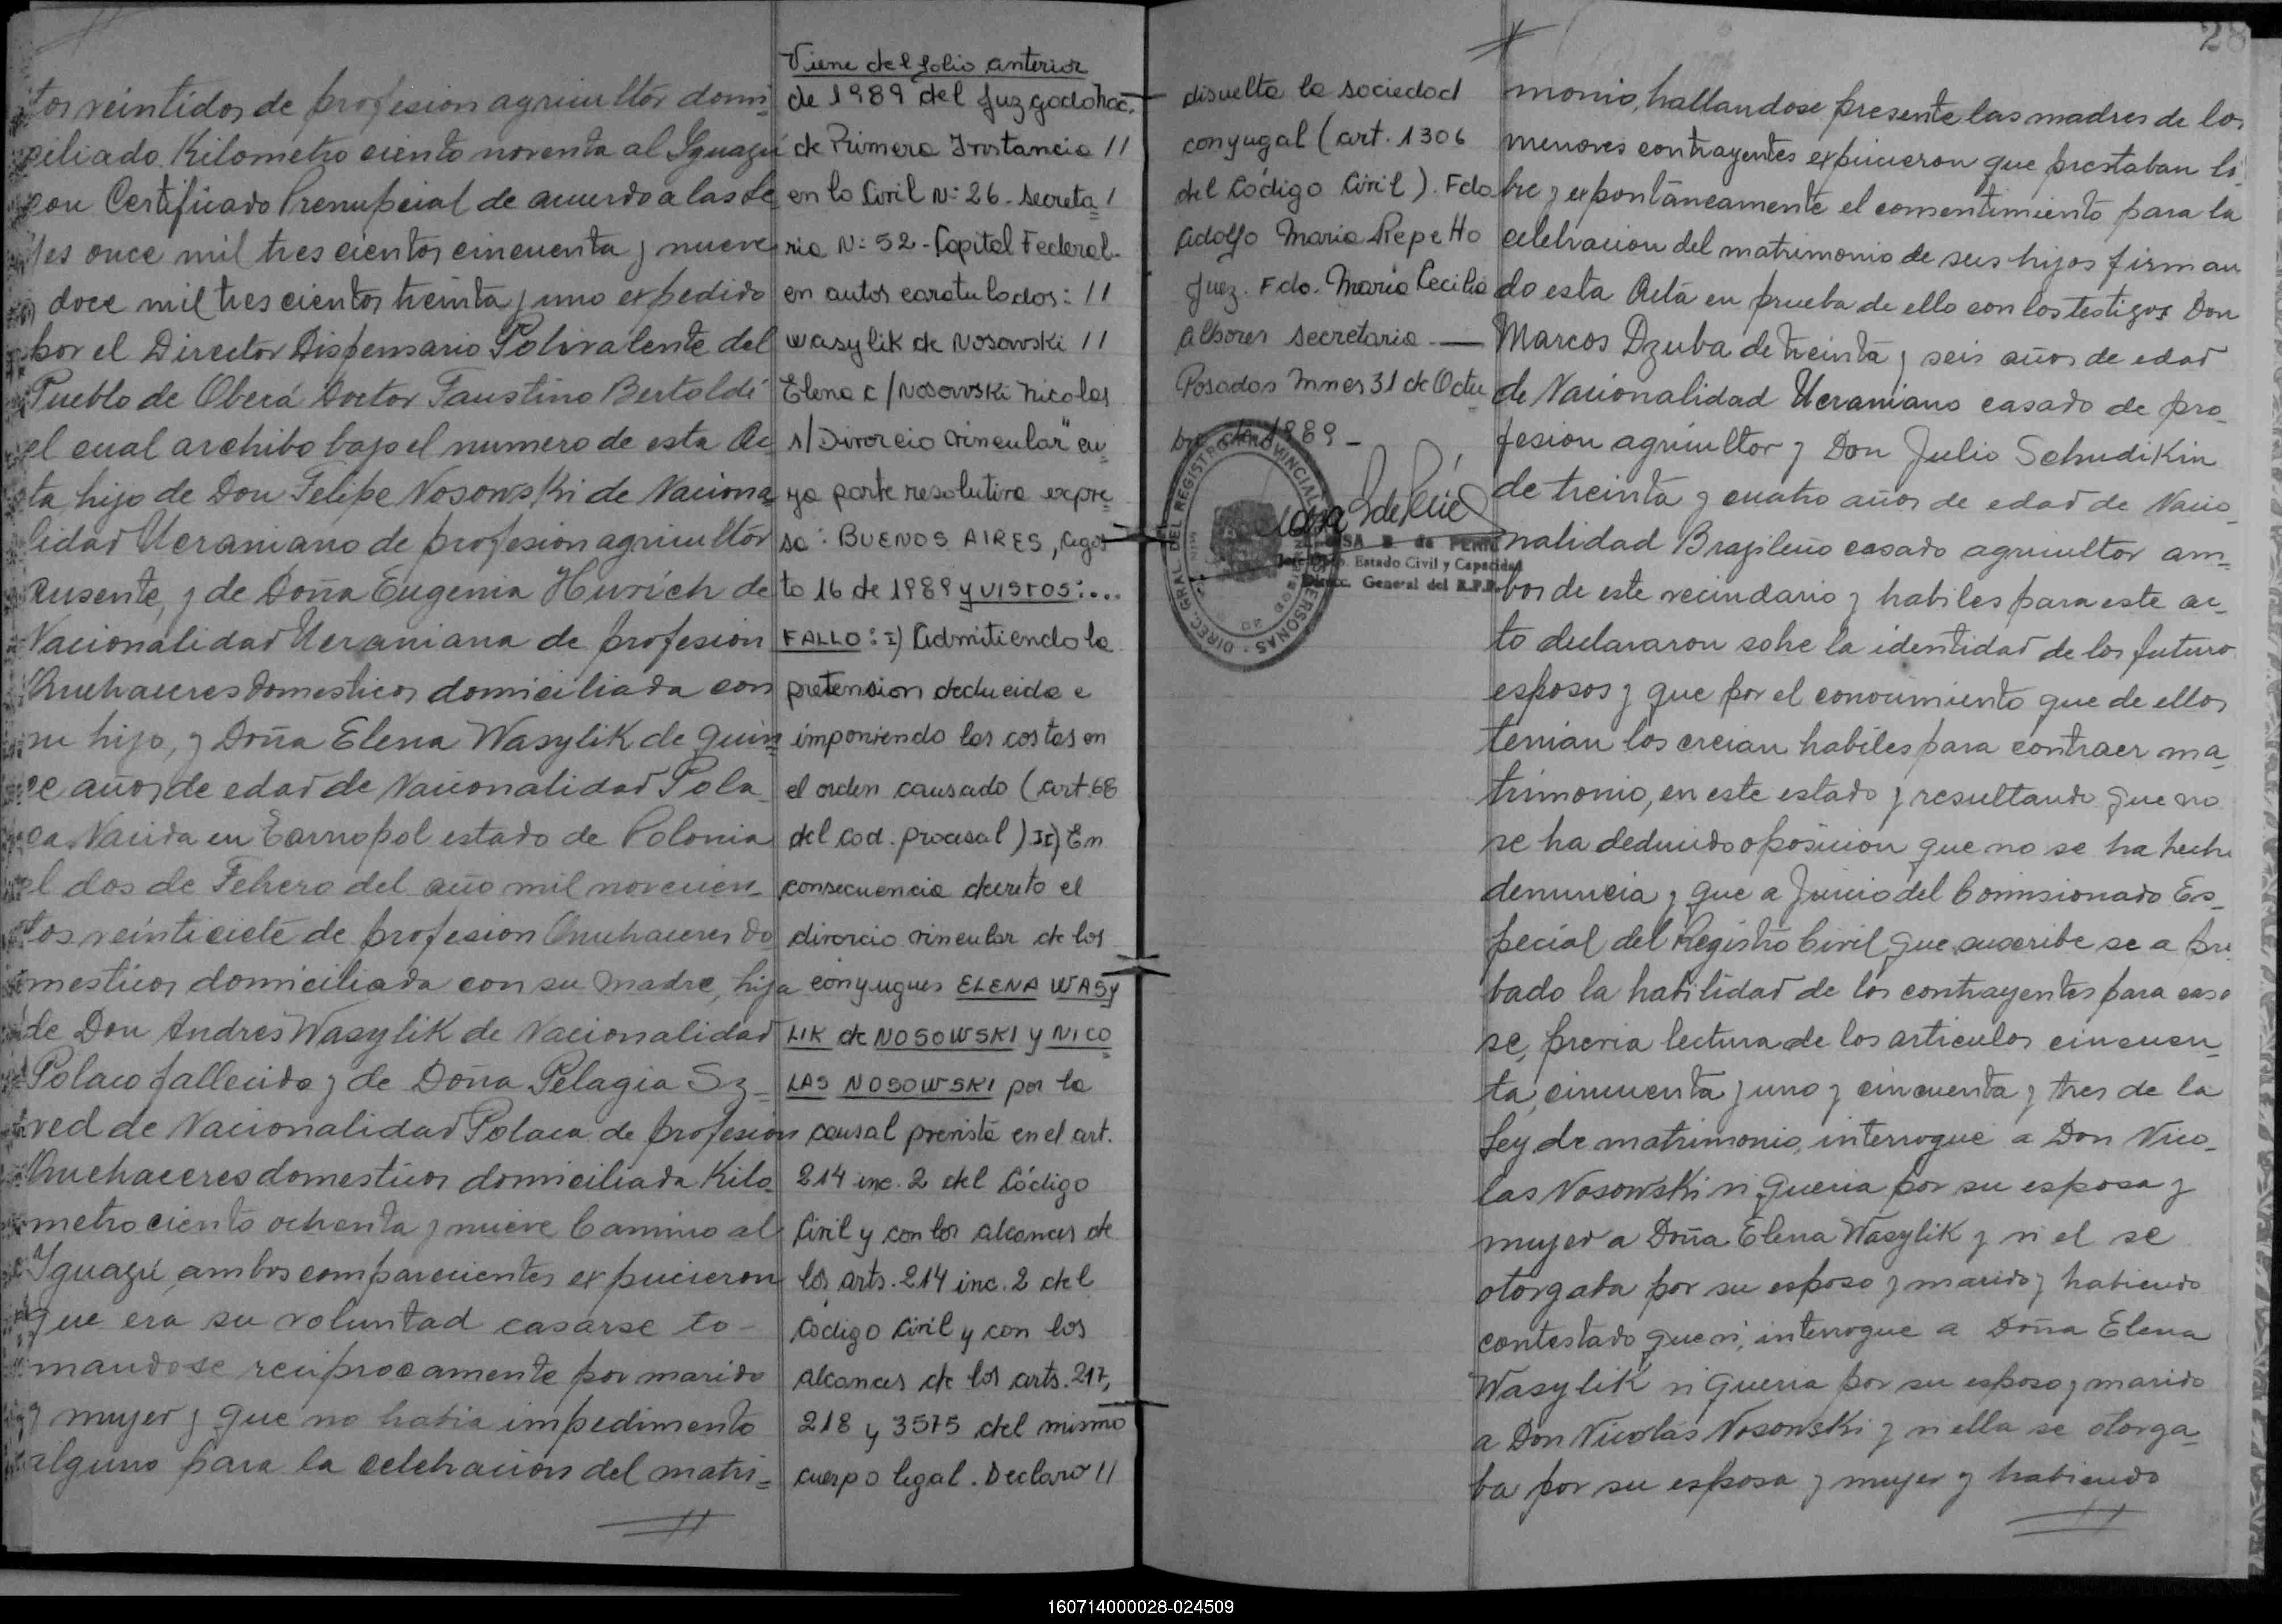 tos veintidos de profesion agricultor domi-
ciliado Kilometro ciento noventa al Iguazu
con Certificado Prenupcial de acuerdo a las Le
yes once mil trescientos cincuenta y nueve
y doce mil trescientos treinta y uno expedido
por el Director Dispensario Polivalente del
Pueblo de Oberá Doctor Faustino Bertoldi
el cual archibo bajo el numero de esta Ac
ta hijo de Don Felipe Nosowski de Naciona
lidad Ucraniano de profesion agricultor
ausente, y de Doña Eugenia Hurich de
Nacionalidad Ucraniana de profesion
Quehaceres domesticos domiciliada con
su hijo, y Doña Elena Wasylik de quin
ce años de edad de Nacionalidad Pola
ca Nacida en Tarnopol estado de Polonia
el dos de Febrero del año mil novecien-
tos veinticiete de profesion Quehaceres do
mesticos domiciliada con su madre, hija
de Don Andres Wasylik de Nacionalidad
Polaco fallecido y de Doña Pelagia Sz-
ved de Nacionalidad Polaca de profesion
Quehaceres domesticos domiciliada Kilo
metro ciento ochenta y nueve Camino al
Iguazú, ambos comparecientes expucieron
que era su voluntad casarse to-
mandose reciprocamente por marido
y mujer y que no habia impedimento
alguno para la celebracion del matri=
Viene del folio anterior
de 1989 del Juzgado Nac.
de Primera Instancia //
en lo Civil N: 26 - Secreta /
ria N: 52 - Capital Federal -
en autos caratulados: //
Wasylik de Nosowski //
Elena c/ Nosowski Nicolas
s/ Divorcio Vincular" cu
ya parte resolutiva expre
sa: BUENOS AIRES, Agos
to 16 de 1989 y VISTOS:...
FALLO: I) Admitiendo la
pretension deducida e
imponiendo las costas en
el orden causado (art. 68
del cod. procesal) II) En
consecuencia decreto el
divorcio vincular de los
conyugues ELENA WASY
LIK de NOSOWSKI y NICO
LAS NOSOWSKI por la
causal prevista en el art.
214 inc. 2 del Código
Civil y con los alcances de
los arts. 214 inc. 2 del
Código Civil y con los
alcances de los arts. 217,
218 y 3575 del mismo
cuerpo legal. Declaro //
disuelta la sociedad
conyugal (art. 1306
del Código Civil). Fdo
Adolfo Maria Repetto
Juez. Fdo. Maria Cecilia
Albores Secretaria. —
Posadas Mnes 31 de Octu
bre de 1989 -
DIREC. GRAL DEL REGISTRO PROVINCIAL PERSONAS
de
Estado Civil y Capacidad
Direcc. General del R.P.P.
28
monio, hallandose presente las madres de los
menores contrayentes expucieron que prestaban li
bre y expontáneamente el consentimiento para la
celebracion del matrimonio de sus hijos firman
do esta Acta en prueba de ello con los testigos Don
Marcos Dzuba de treinta y seis años de edad
de Nacionalidad Ucraniano casado de pro-
fesion agricultor y Don Julio Schudikin
de treinta y cuatro años de edad de Nacio-
nalidad Brazileño casado agricultor am-
bos de este vecindario y habiles para este ac-
to declararon sobre la identidad de los futuro
esposos y que por el conocimiento que de ellos
tenian los creian habiles para contraer ma
trimonio, en este estado y resultando que no
se ha deducido oposicion que no se ha hecho
denuncia y que a Juicio del Comisionado Es-
pecial del Registro Civil que suscribe se a pro
bado la habilidad de los contrayentes para casar
se, previa lectura de los articulos cincuen-
ta, cincuenta y uno y cincuenta y tres de la
Ley de matrimonio, interrogue a Don Nico-
las Nosowski si queria por su esposa y
mujer a Doña Elena Wasylik y si el se
otorgaba por su esposo y marido y habiendo
contestado que si, interrogue a Doña Elena
Wasylik si queria por su esposo y marido
a Don Nicolás Nosowski y si ella se otorga-
ba por su esposa y mujer y habiendo
160714000028-024509